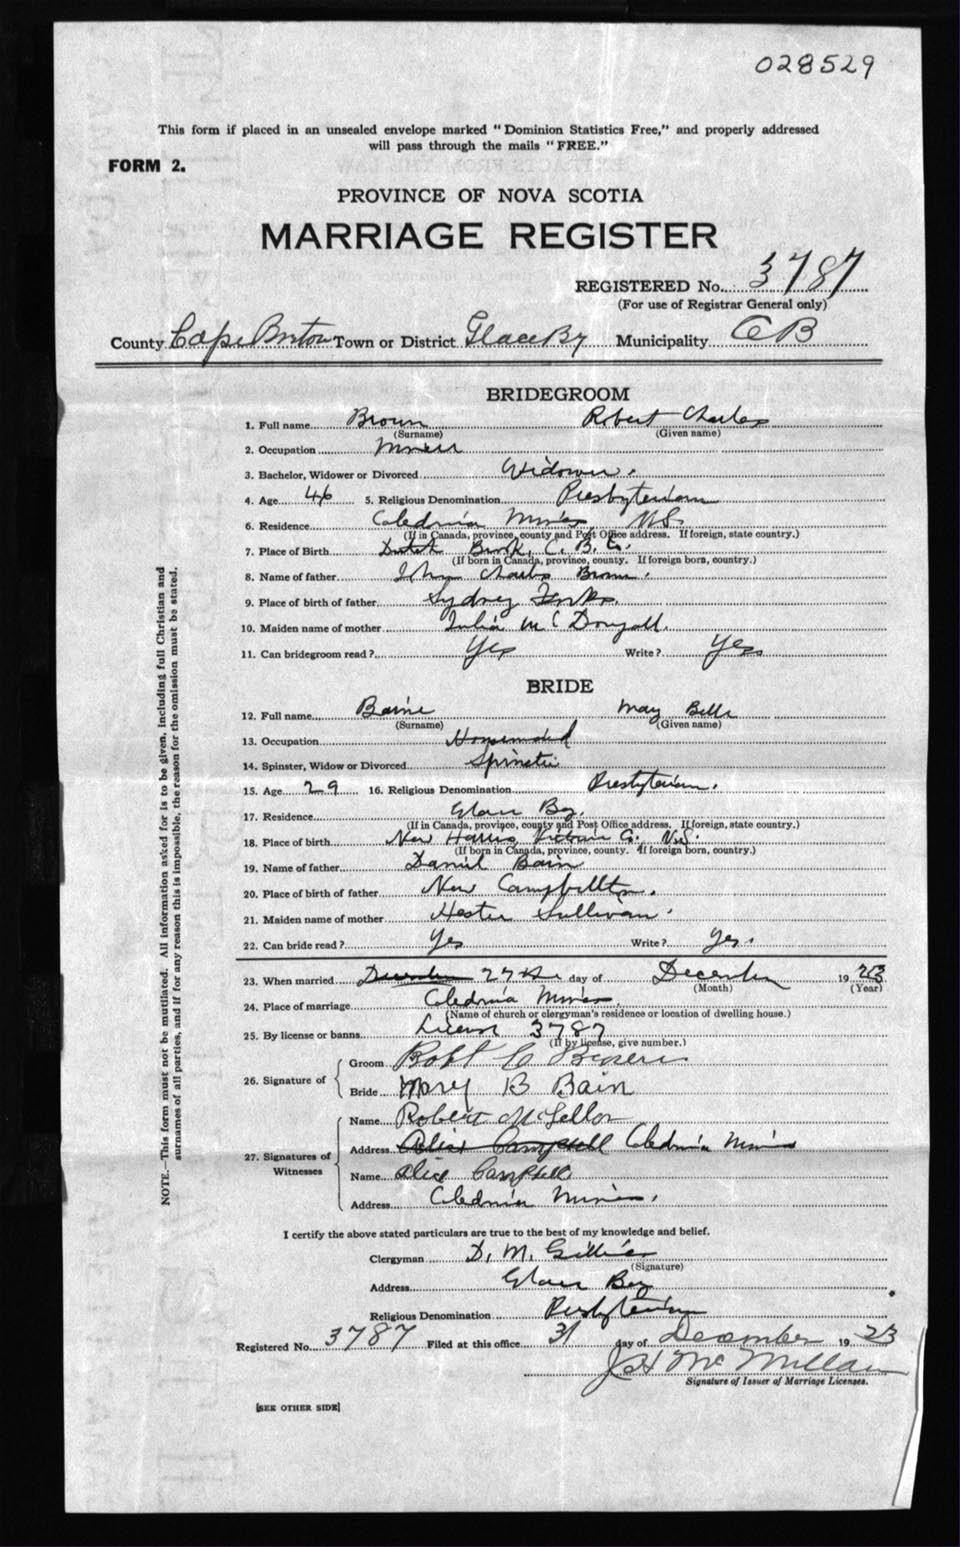 028529
This form if placed in an unsealed envelope marked "Dominion Statistics Free," and properly addressed
will pass through the mails "FREE."
FORM 2.
PROVINCE OF NOVA SCOTIA
MARRIAGE REGISTER
REGISTERED No. 3787
(For use of Registrar General only)
County Cape Breton Town or District Glace By Municipality C B
BRIDEGROOM
1. Full name Brown Robert Charles
(Surname) (Given name)
2. Occupation Miner
3. Bachelor, Widower or Divorced Widower.
4. Age 46 5. Religious Denomination Presbyterian
6. Residence Caledonia Mines N.S.
(If in Canada, province, county and Post Office address. If foreign, state country.)
7. Place of Birth Dutch Brook, C. B. Co.
(If born in Canada, province, county. If foreign born, country.)
8. Name of father John Charles Brown.
9. Place of birth of father Sydney Forks.
10. Maiden name of mother Julia McDougall.
11. Can bridegroom read? Yes Write? Yes
BRIDE
12. Full name Baine May Belle
(Surname) (Given name)
13. Occupation Housemaid
14. Spinster, Widow or Divorced Spinster
15. Age 29 16. Religious Denomination Presbyterian.
17. Residence Glace By.
(If in Canada, province, county and Post Office address. If foreign, state country.)
18. Place of birth New Harris Victoria Co. N.S.
(If born in Canada, province, county. If foreign born, country.)
19. Name of father Daniel Bain
20. Place of birth of father New Campbellton.
21. Maiden name of mother Hester Sullivan.
22. Can bride read? Yes Write? Yes.
23. When married December 27th day of December 1923
(Month) (Year)
24. Place of marriage Caledonia Mines.
(Name of church or clergyman's residence or location of dwelling house.)
25. By license or banns License 3787
(If by license, give number.)
26. Signature of
Groom Robt C Brown
Bride Mary B Bain
27. Signatures of Witnesses
Name Robert McLellan
Address Alice Campbell Caledonia Mines
Name Alice Campbell
Address Caledonia Mines.
NOTE.—This form must not be mutilated. All information asked for is to be given, including full Christian and
surnames of all parties, and if for any reason this is impossible, the reason for the omission must be stated.
I certify the above stated particulars are true to the best of my knowledge and belief.
Clergyman D. M. Gillies
(Signature)
Address Glace Bay
Religious Denomination Presbyterian
Registered No. 3787 Filed at this office 31 day of December 1923
J H McMillan
Signature of Issuer of Marriage Licenses.
[SEE OTHER SIDE]